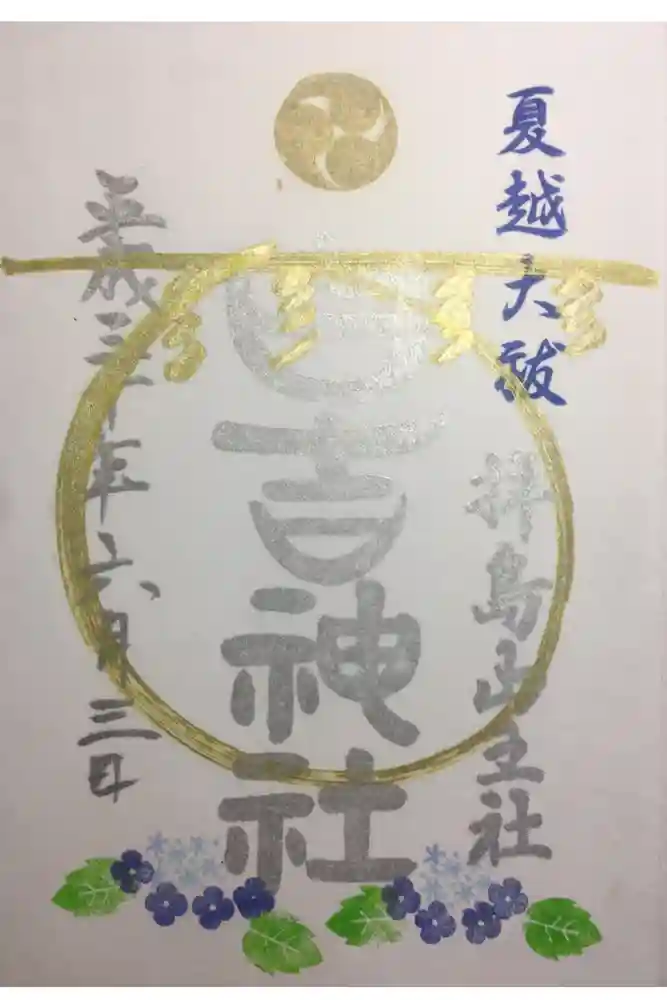 夏越大祓
拝島山王社
日吉神社
平成三十年六月三日